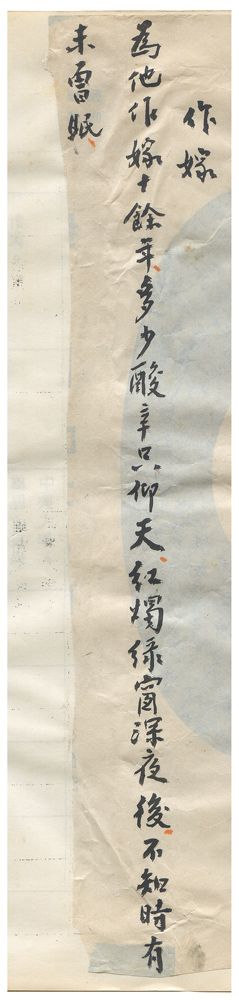 作嫁
為他作嫁十餘年多少酸辛只仰天紅燭綠窗深夜後不知時有
未曾眠